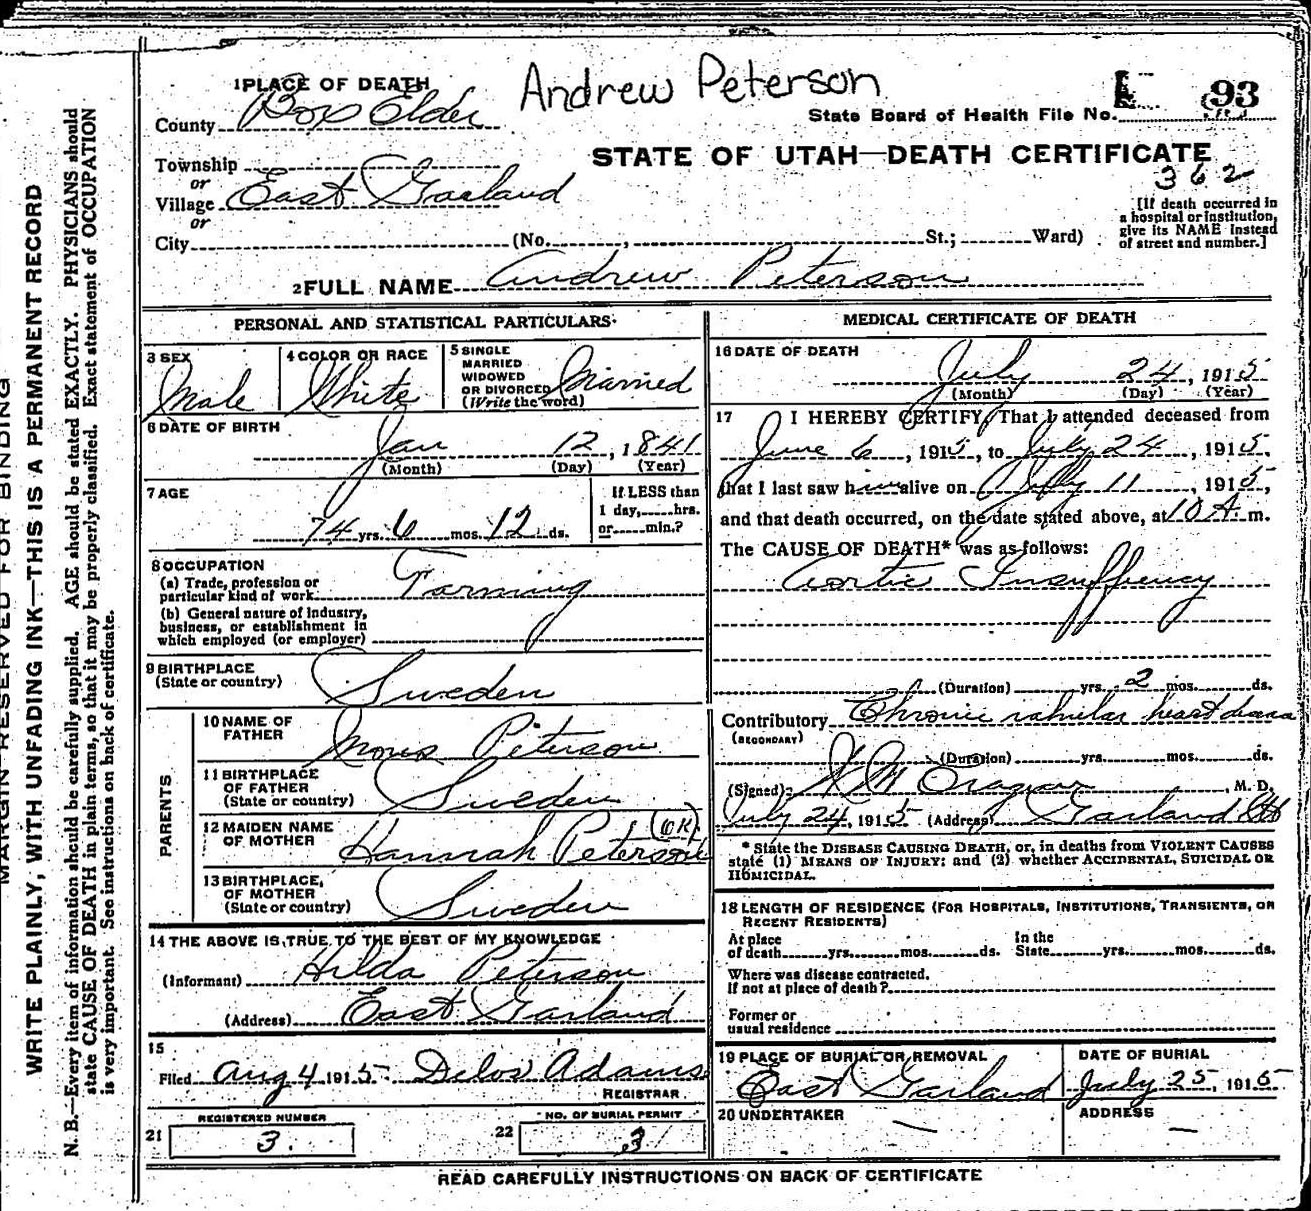 Andrew Peterson
1 PLACE OF DEATH
County Box Elder
State Board of Health File No. 93
STATE OF UTAH—DEATH CERTIFICATE
362
Township
or
Village East Garland
or
City (No. , St.; Ward)
[If death occurred in
a hospital or institution,
give its NAME instead
of street and number.]
2 FULL NAME Andrew Peterson
PERSONAL AND STATISTICAL PARTICULARS
3 SEX
Male
4 COLOR OR RACE
White
5 SINGLE
MARRIED
WIDOWED
OR DIVORCED
(Write the word)
Married
6 DATE OF BIRTH
Jan 12, 1841
(Month) (Day) (Year)
7 AGE
74 yrs. 6 mos. 12 ds.
If LESS than
1 day, hrs.
or min.?
8 OCCUPATION
(a) Trade, profession or
particular kind of work Farming
(b) General nature of Industry,
business, or establishment in
which employed (or employer)
9 BIRTHPLACE
(State or country) Sweden
PARENTS
10 NAME OF
FATHER Peterson
11 BIRTHPLACE
OF FATHER
(State or country) Sweden
12 MAIDEN NAME
OF MOTHER Hannah Peterson (OK)
13 BIRTHPLACE,
OF MOTHER
(State or country) Sweden
14 THE ABOVE IS TRUE TO THE BEST OF MY KNOWLEDGE
(Informant) Hilda Peterson
(Address) East Garland
15
Filed Aug 4 1915 Delos Adams
REGISTRAR
REGISTERED NUMBER
21 3.
NO. OF BURIAL PERMIT
22 3
MEDICAL CERTIFICATE OF DEATH
16 DATE OF DEATH
July 24, 1915
(Month) (Day) (Year)
17 I HEREBY CERTIFY, That I attended deceased from
June 6, 1915, to July 24, 1915,
that I last saw him alive on July 11, 1915,
and that death occurred, on the date stated above, at 10 A. m.
The CAUSE OF DEATH* was as follows:
Aortic Insuffiency
(Duration) yrs. 2 mos. ds.
Contributory Chronic valvular heart
(SECONDARY)
(Duration) yrs. mos. ds.
(Signed) M. D.
July 24, 1915 (Address) Garland Ut
* State the DISEASE CAUSING DEATH, or, in deaths from VIOLENT CAUSES
state (1) MEANS OF INJURY; and (2) whether ACCIDENTAL, SUICIDAL OR
HOMICIDAL.
18 LENGTH OF RESIDENCE (FOR HOSPITALS, INSTITUTIONS, TRANSIENTS, OR
RECENT RESIDENTS)
At place
of death yrs. mos. ds. In the
State yrs. mos. ds.
Where was disease contracted,
If not at place of death?
Former or
usual residence
19 PLACE OF BURIAL OR REMOVAL
East Garland
DATE OF BURIAL
July 25, 1915
20 UNDERTAKER
—
ADDRESS
—
READ CAREFULLY INSTRUCTIONS ON BACK OF CERTIFICATE
MARGIN RESERVED FOR BINDING
WRITE PLAINLY, WITH UNFADING INK—THIS IS A PERMANENT RECORD
N. B.—Every item of information should be carefully supplied. AGE should be stated EXACTLY. PHYSICIANS should
state CAUSE OF DEATH in plain terms, so that it may be properly classified. Exact statement of OCCUPATION
is very important. See instructions on back of certificate.